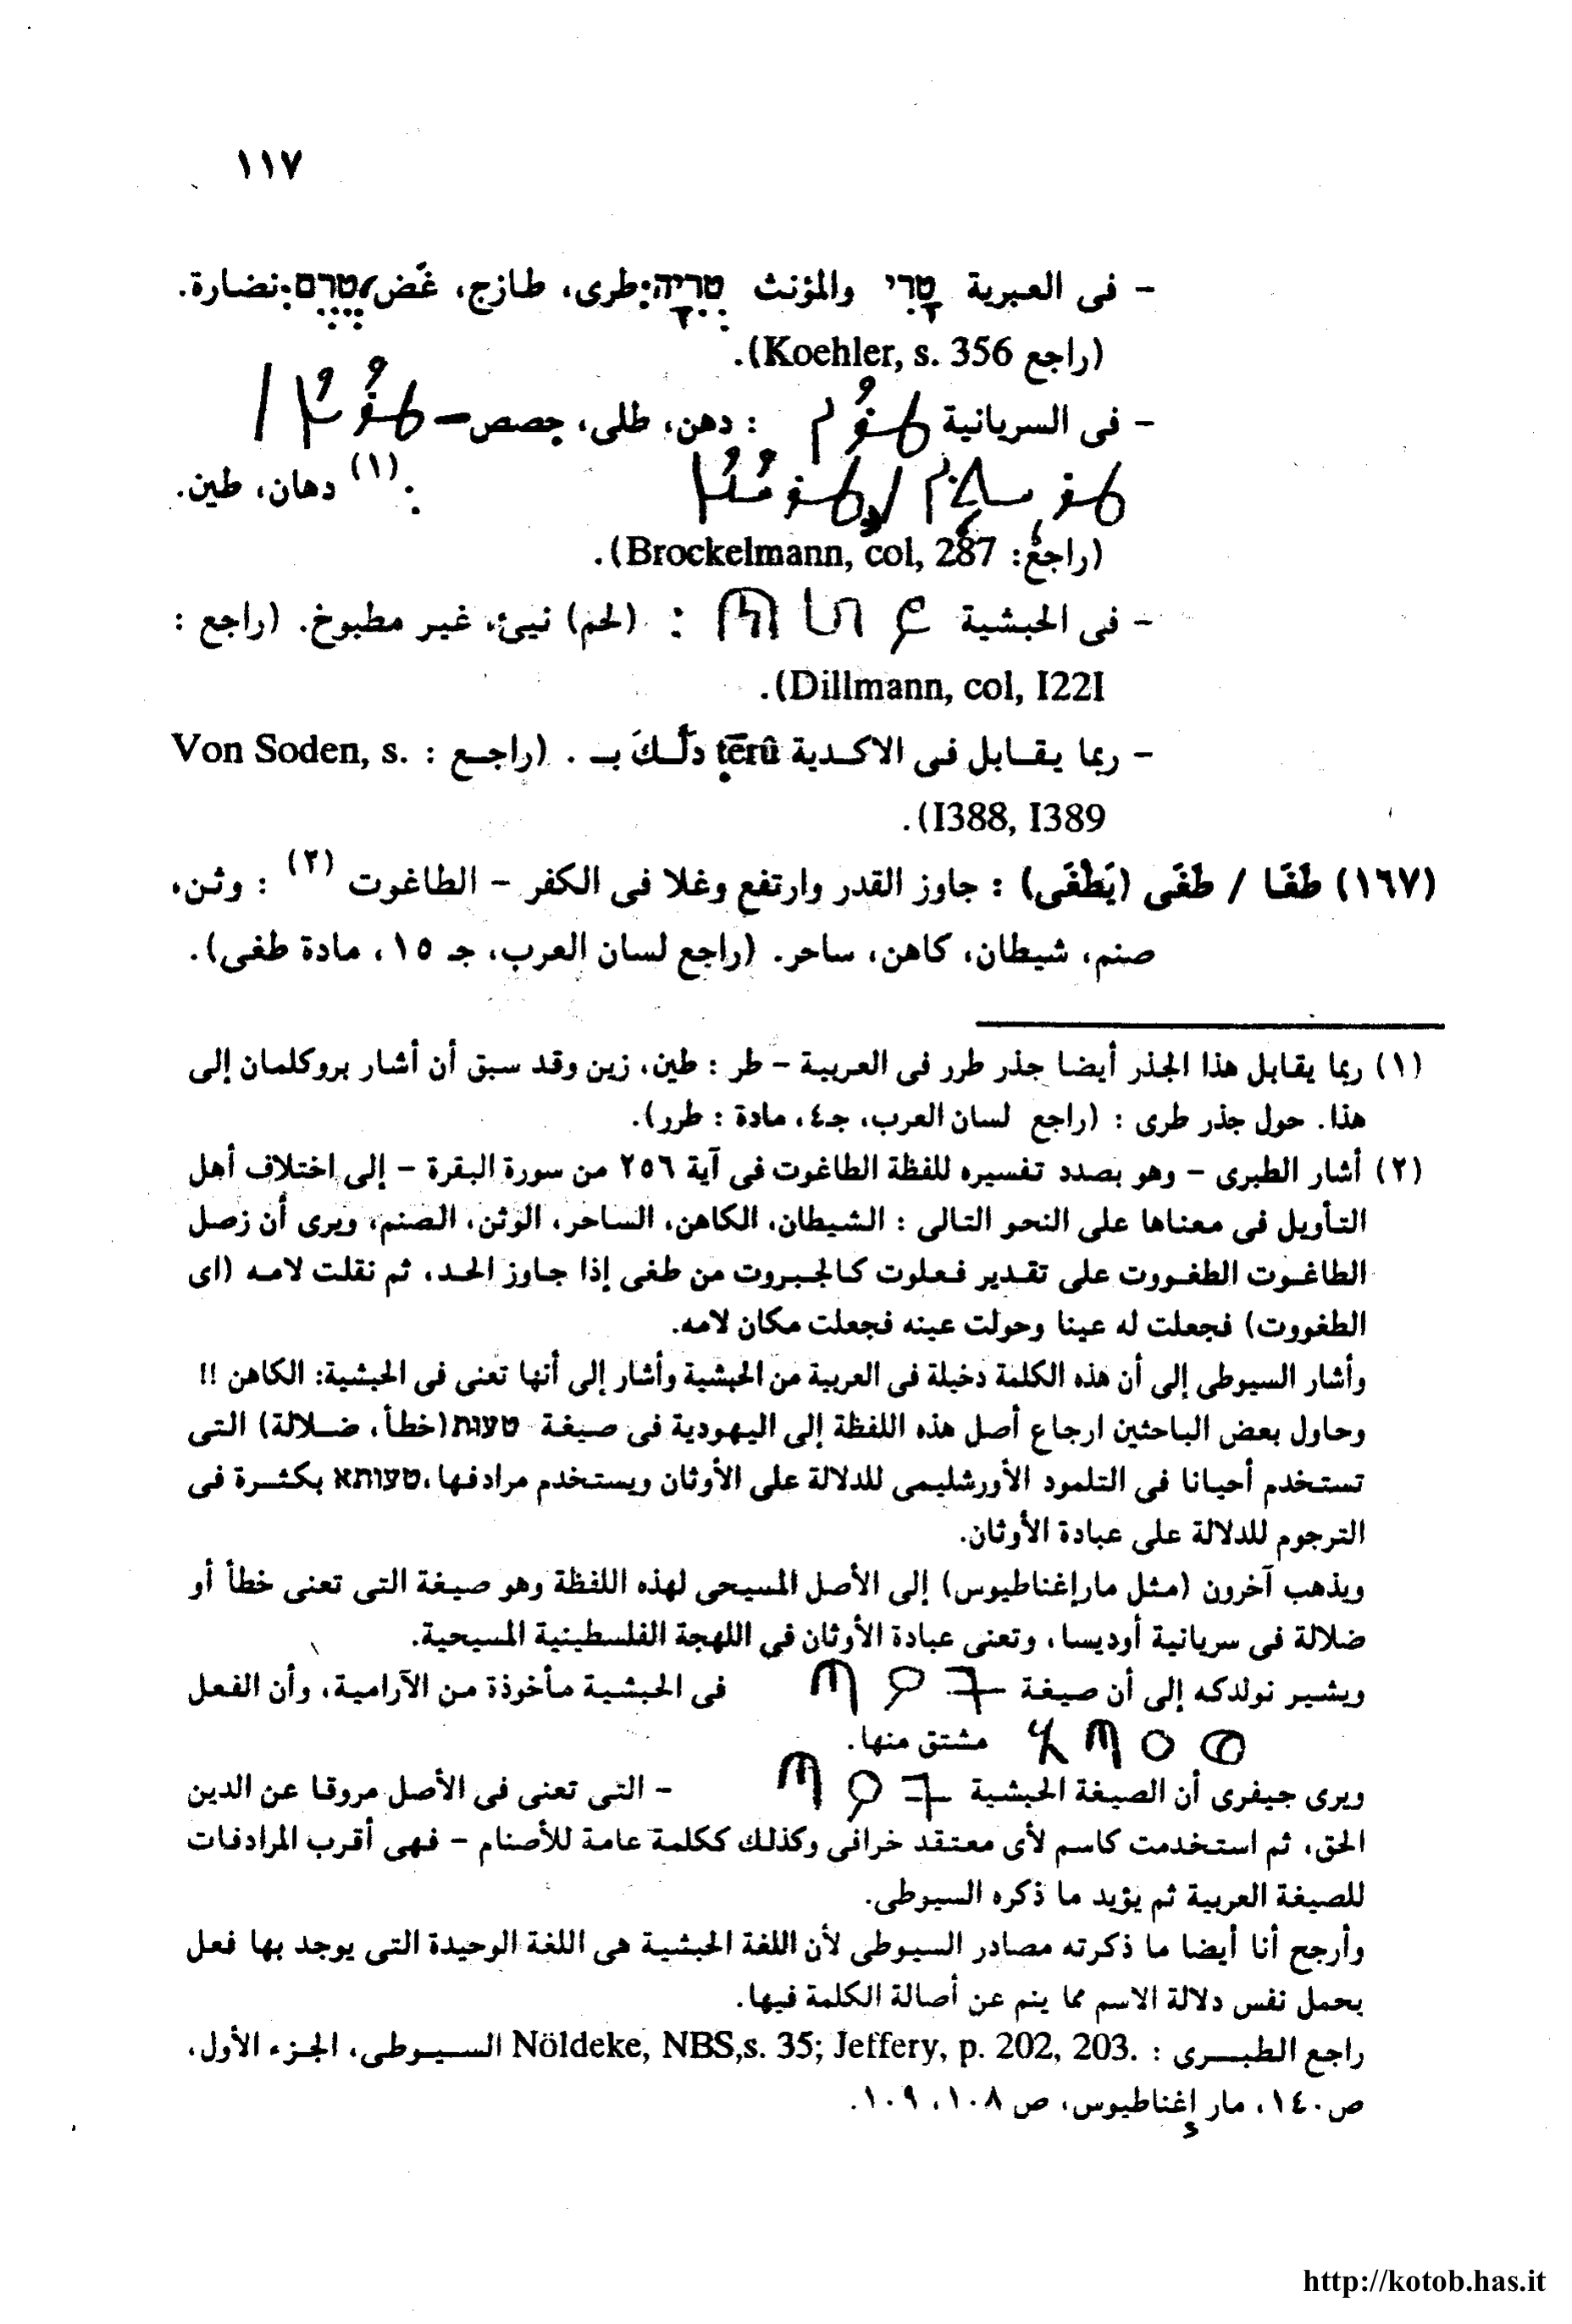 ١١٧
- فى العبرية טרי والمؤنث טריה: طرى، طازج، غَض/ טרם: نضارة.
(راجع Koehler, s. 356).
- فى السريانية : دهن، طلى، جصص –
(١) : دهان، طين.
(راجع: Brockelmann, col, 287).
- فى الحبشية : (لحم) نيئ، غير مطبوخ. (راجع :
Dillmann, col, I22I).
- ربما يقابل فى الاكدية ṭērû دلَّكَ بـ . (راجع : Von Soden, s.
I388, I389).
(١٦٧) طَغَا / طَغَى (يَطْغَى) : جاوز القدر وارتفع وغلا فى الكفر - الطاغوت (٢) : وثن،
صنم، شيطان، كاهن، ساحر. (راجع لسان العرب، جـ ١٥، مادة طغى).
(١) ربما يقابل هذا الجذر أيضا جذر طرر فى العربية - طر : طين، زين وقد سبق أن أشار بروكلمان إلى
هذا. حول جذر طرى : (راجع لسان العرب، جـ٤، مادة : طرر).
(٢) أشار الطبرى - وهو بصدد تفسيره للفظة الطاغوت فى آية ٢٥٦ من سورة البقرة - إلى اختلاف أهل
التأويل فى معناها على النحو التالى : الشيطان، الكاهن، الساحر، الوثن، الصنم، ويرى أن زصل
الطاغوت الطغووت على تقدير فعلوت كالجبروت من طغى إذا جاوز الحد، ثم نقلت لامه (اى
الطغووت) فجعلت له عينا وحولت عينه فجعلت مكان لامه.
وأشار السيوطى إلى أن هذه الكلمة دخيلة فى العربية من الحبشية وأشار إلى أنها تعنى فى الحبشية: الكاهن !!
وحاول بعض الباحثين ارجاع أصل هذه اللفظة إلى اليهودية فى صيغة טעות (خطأ، ضلالة) التى
تستخدم أحيانا فى التلمود الأورشليمى للدلالة على الأوثان ويستخدم مرادفها، טעותא بكثرة فى
الترجوم للدلالة على عبادة الأوثان.
ويذهب آخرون (مثل مارإغناطيوس) إلى الأصل المسيحى لهذه اللفظة وهو صيغة التى تعنى خطأ أو
ضلالة فى سريانية أوديسا، وتعنى عبادة الأوثان فى اللهجة الفلسطينية المسيحية.
ويشير نولدكه إلى أن صيغة فى الحبشية مأخوذة من الآرامية، وأن الفعل
مشتق منها.
ويرى جيفرى أن الصيغة الحبشية - التى تعنى فى الأصل مروقا عن الدين
الحق، ثم استخدمت كاسم لأى معتقد خرافى وكذلك ككلمة عامة للأصنام - فهى أقرب المرادفات
للصيغة العربية ثم يؤيد ما ذكره السيوطى.
وأرجح أنا أيضا ما ذكرته مصادر السيوطى لأن اللغة الحبشية هى اللغة الوحيدة التى يوجد بها فعل
يحمل نفس دلالة الاسم مما ينم عن أصالة الكلمة فيها.
راجع الطبرى : Nöldeke, NBS,s. 35; Jeffery, p. 202, 203. السيوطى، الجزء الأول،
ص١٤٠، مار إغناطيوس، ص ١٠٨، ١٠٩.
http://kotob.has.it